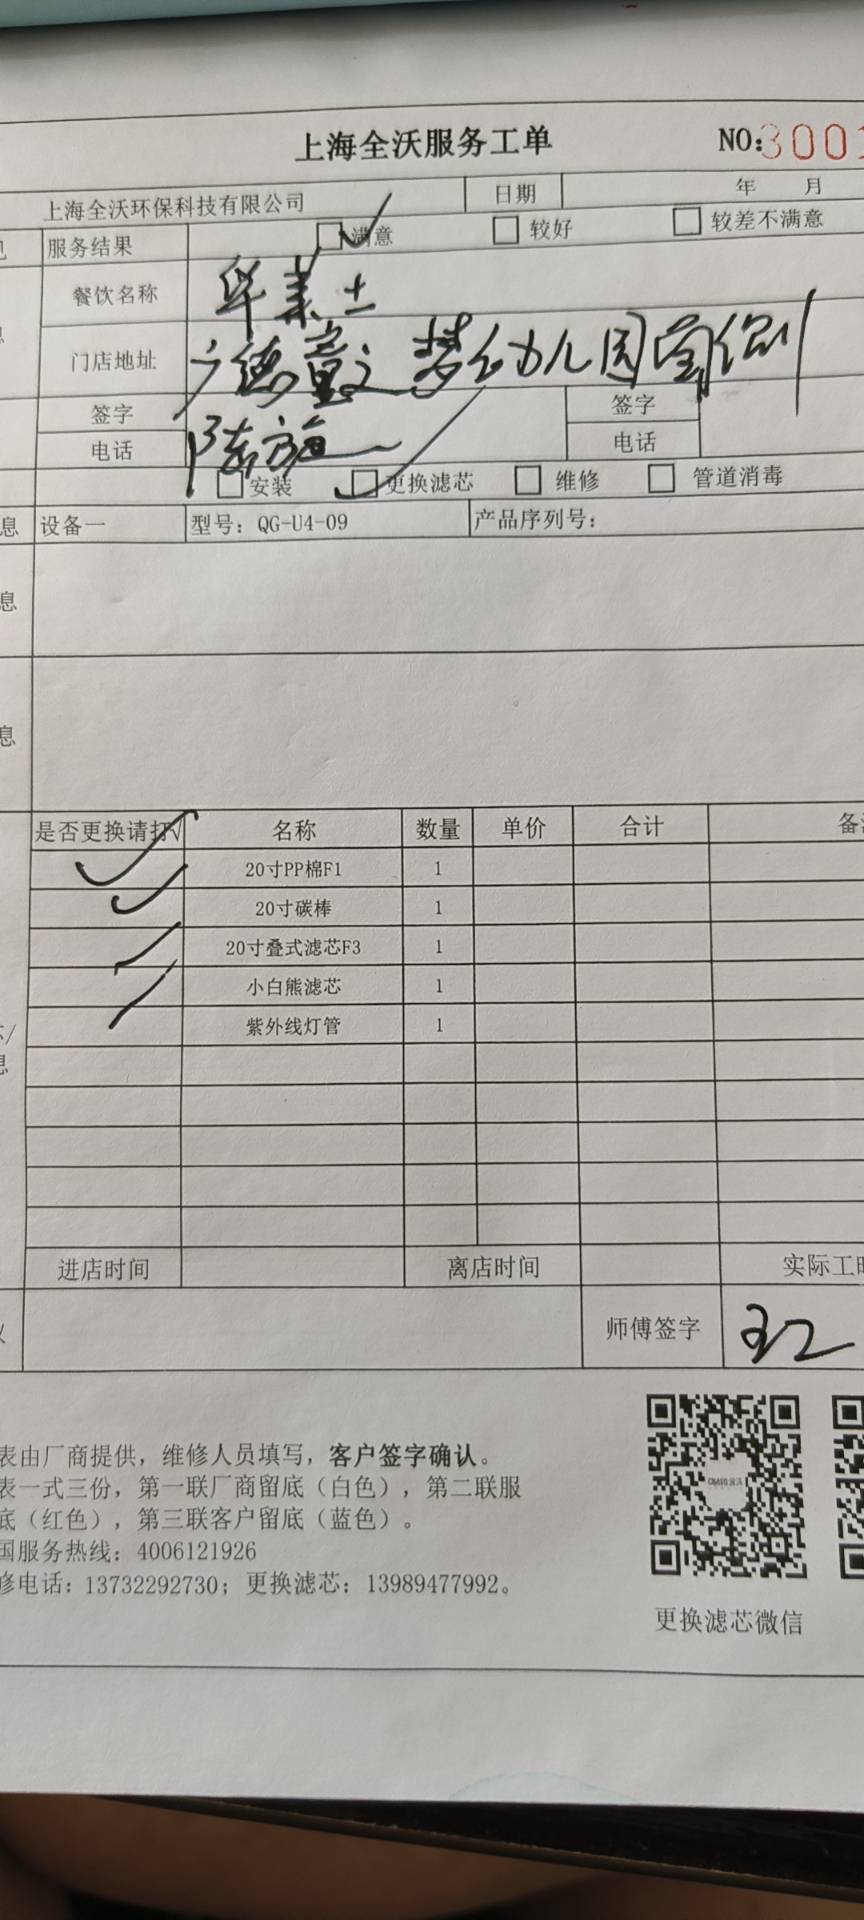 上海全沃服务工单 NO:3001
上海全沃环保科技有限公司 日期 年 月
服务结果 满意 较好 较差不满意
餐饮名称 华莱士
门店地址 广德童之梦幼儿园南侧
签字 陈旋 签字
电话 电话
安装 更换滤芯 维修 管道消毒
息 设备一 型号：QG-U4-09 产品序列号：
息
息
是否更换请打√ 名称 数量 单价 合计 备
20寸PP棉F1 1
20寸碳棒 1
20寸叠式滤芯F3 1
小白熊滤芯 1
紫外线灯管 1
进店时间 离店时间 实际工时
师傅签字
表由厂商提供，维修人员填写，客户签字确认。
表一式三份，第一联厂商留底（白色），第二联服
底（红色），第三联客户留底（蓝色）。
国服务热线：4006121926
修电话：13732292730；更换滤芯：13989477992。
更换滤芯微信